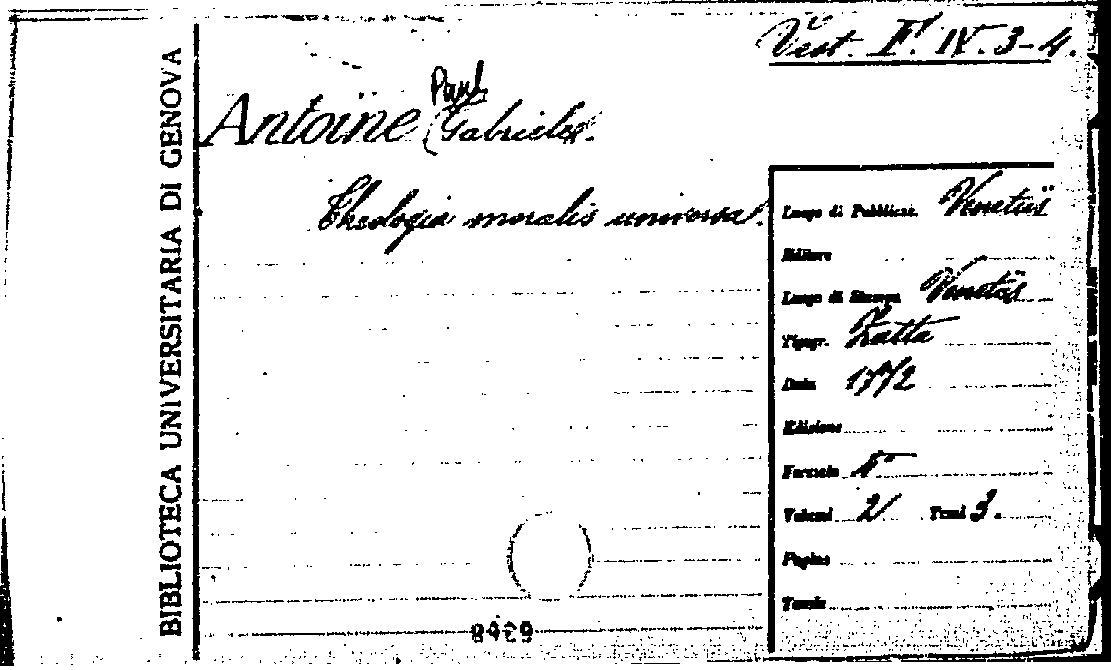 BIBLIOTECA UNIVERSITARIA DI GENOVA
Vest. F! IV. 3-4.
Paul
Antoine (Gabriele.
Theologia moralis universa.
Luogo di Pubblicaz. Venetiis
Editore
Luogo di Stampa Venetiis
Tipogr. Zatta
Data 1772
Edizione
Formato
Volumi 2 Tomi 3.
Pagine
Tavole